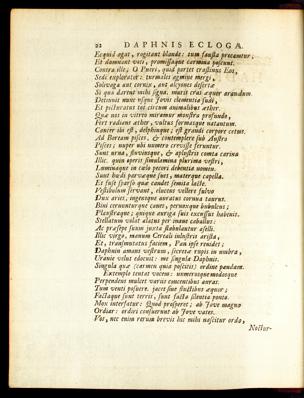 22 DAPHNIS ECLOGA.
Ecquid agat, rogitant blande: tum fausta precantur;
Et damnant voti, promissaque carmina poscunt.
Contra ille; O Pueri, quid portet crastinus Eos,
Sedi exploratet: turmales agmine mergi,
Solivaga aut cornix, aut alcyones desertæ
Si qua darent mihi signa. maris erat æquor arandum
Detinuit nunc usque Jovis clementia sudi,
Et picturatus tot circum animalibus æther.
Quæ uti in vitreo miramur monstra profundo,
Fert radians æther, vultus formaque natantum.
Cancer ibi est, delphinque; est grandi corpore cetus.
Ad Boream pisces, & contemplere sub Austro
Pisces; nuper ubi numero crevisse feruntur.
Sunt urna, fluviique, & aplustris comta carina
Illic. quin aperit simulamina plurima vestri,
Luminaque in cælo pecori debentia nomen.
Sunt hœdi parvæque sues, materque capella.
Et fuse sparso quæ candet semita lacte.
Vestibulum servant, elucens vellere fulvo
Dux aries, ingensque auratus cornua taurus.
Bini cernunturque canes, pernoxque bubulcus;
Plaustraque; quique auroga suis excussus habenis.
Stellatum volat alatus per inane caballus:
Ac præsepe suum juxta stabulantur aselli.
Illic virgo, manum Cereali inlustris arista,
Et, transmutatus faciem, Pan ipse renidet;
Daphnin amans vestrum, secretæ rupis in umbra,
Uranie velut edocuit me singula Daphnin.
Singula quæ (carmen quia poscitis) ordine pandam.
Extemplo tentat vocem: numerosque modosque
Perpendens mulcet variis concentibus auras.
Tum venti posuere. jacet sine fluctibus æquor;
Factaque sunt terris, sunt facta silentia ponto.
Mox infert: Quod prosperet; ab Jove magno
Ordiar: ordiri consuerunt ab Jove vates.
Vos, nec enim rerum brevis hic mihi nascitur ordo,
Noctur-